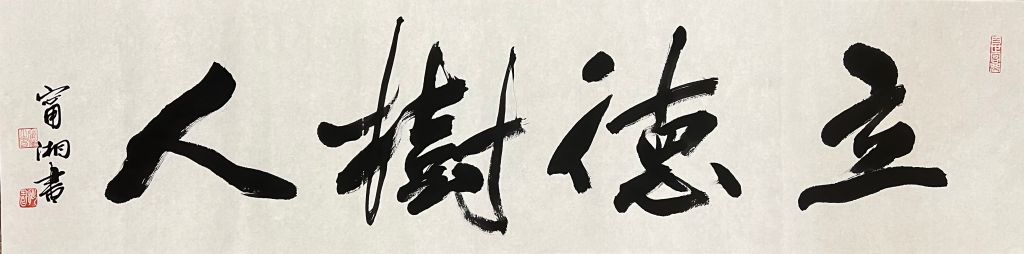 立德樹人
甯湘書